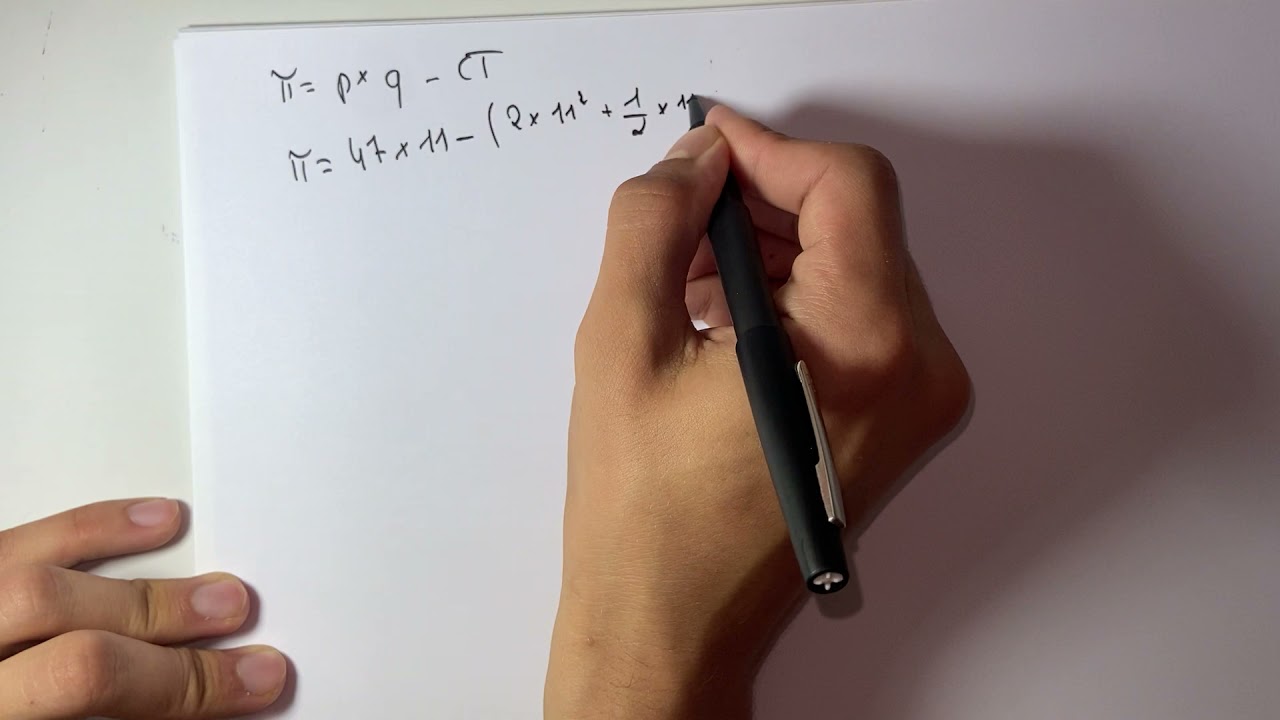 π = p × q - CT
π = 47 × 11 - (2 × 11² + 1/2 × 11